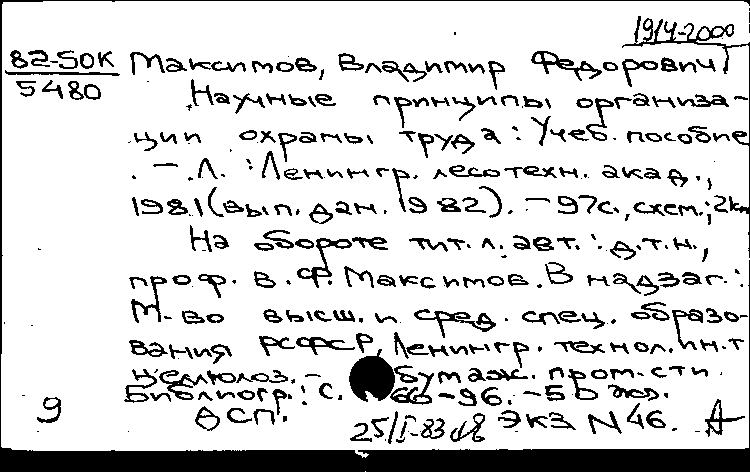 1914-2000
82-50К Максимов, Владимир Федорович
5480
Научные принципы организа-
ции охраны труда: Учеб. пособие
. - Л. : Ленингр. лесотехн. акад.,
1981 (вып. дан. 1982). - 97с., схем.;
На обороте тит. л. авт.: д.т.н.,
проф. В.Ф. Максимов. В надзаг.:
М-во высш. и сред. спец. образо-
вания РСФСР, Ленингр. технол. ин.т
целлюлоз. - бумаж. пром.-сти.
Библиогр.: с. - 96. - 50 экз.
9 ДСП.
25/I-83 ЭКЗ N 46.